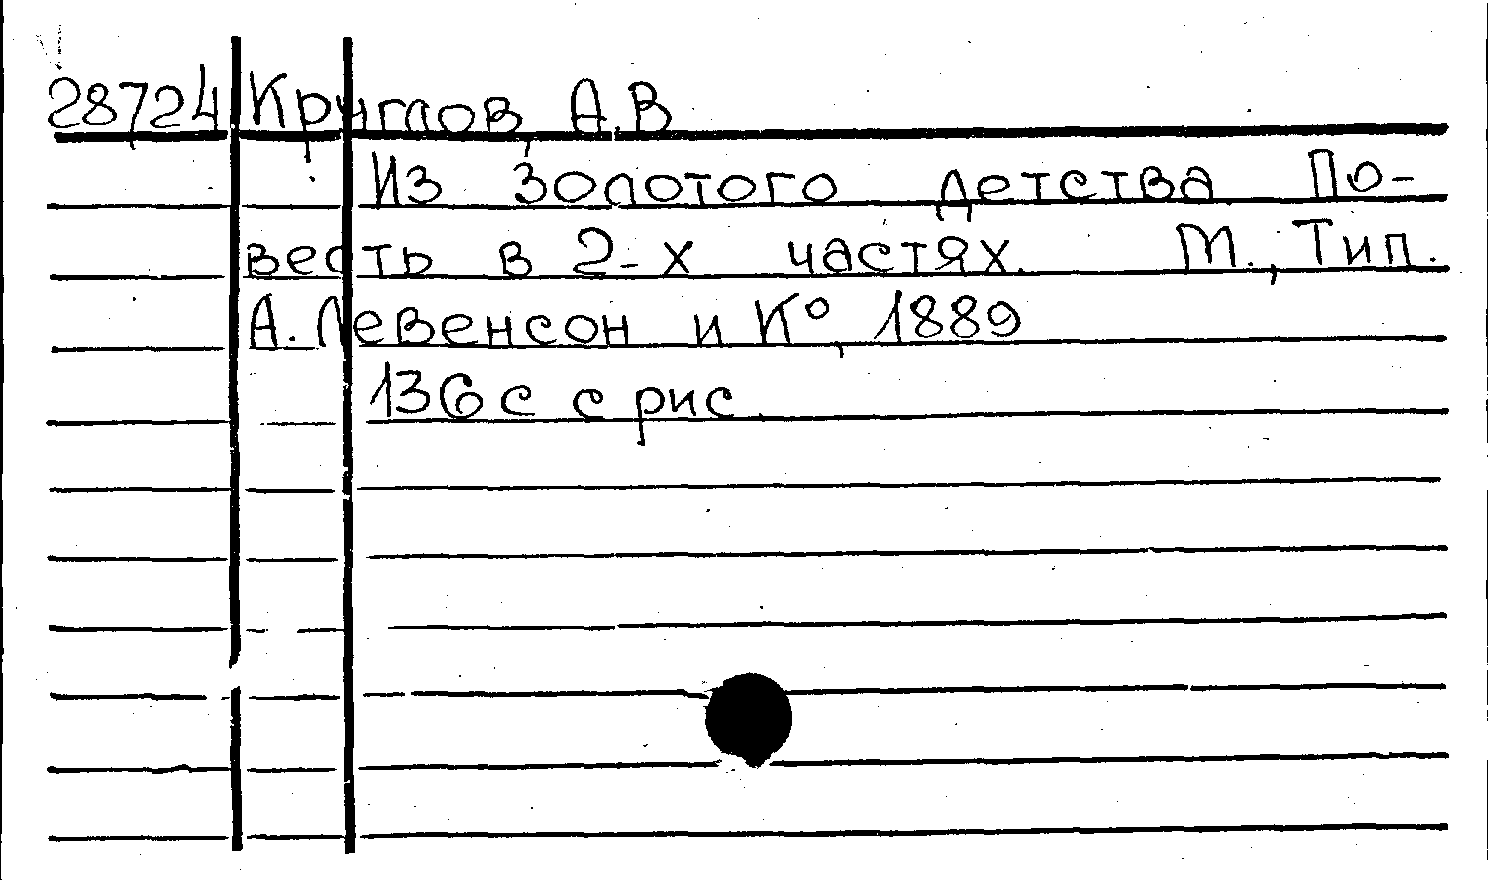 28724 Круглов, А.В
Из золотого детства По-
весть в 2-х частях. М., Тип.
А. Левенсон и К°, 1889
136 с с рис.